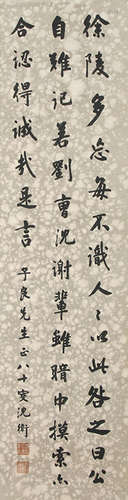 徐陵多忘每不識人々以此咎之曰公
自難記若劉曹沈謝輩雖暗中摸索亦
合認得誠哉是言 子良先生正 八十叟沈衛